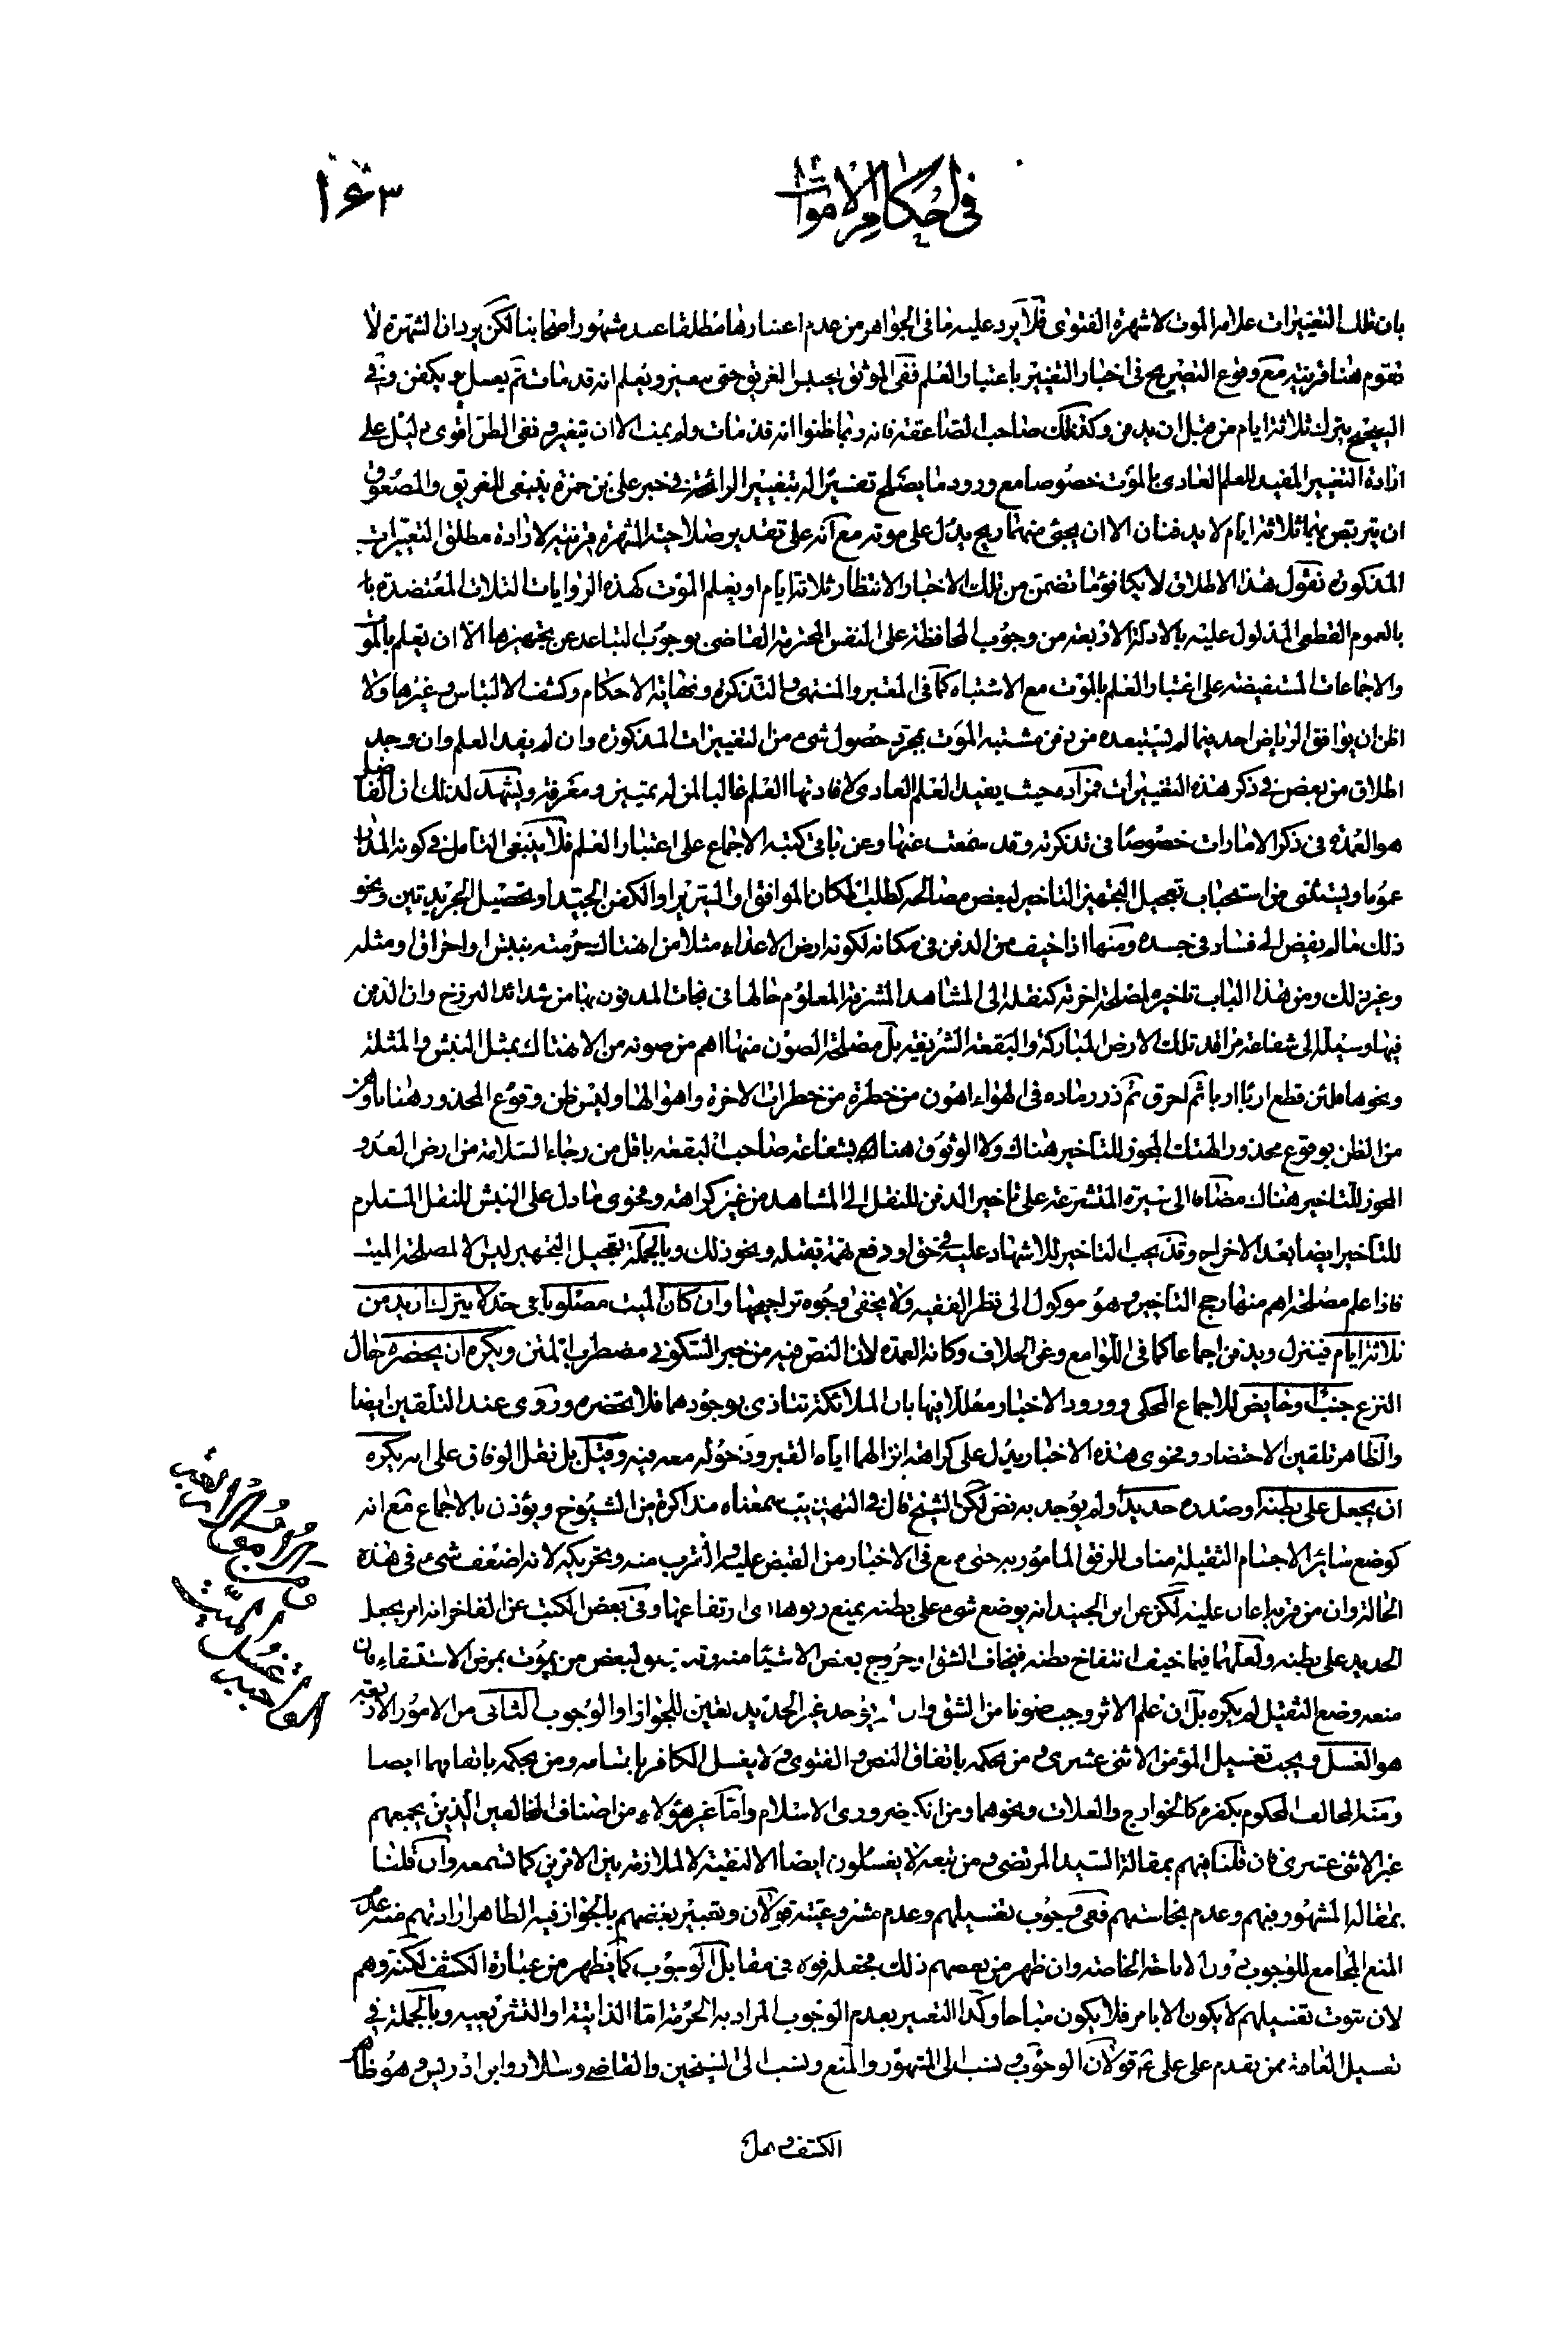 في احكام الاموات
١٦٣
بان تلك التغييرات علامة الموت لا شهرة الفتوى فلا يرد عليه ما في الجواهر من عدم اعتبارها مطلقا عند مشهور اصحابنا لكن يرد ان الشهرة لا
تقوم هنا قرينة مع وقوع التصريح في اخبار التغيير باعتبار العلم ففي الموثق يحبس الغريق حتى يتغير ويعلم انه قد مات ثم يغسل ويكفن وفي
الصحيح يترك ثلاثة ايام من قبل ان يدفن وكذلك صاحب الصاعقة فانه ربما ظنوا انه قد مات ولم يمت الا ان يتغير وفي الظن اقوى دليل على
ارادة التغيير المفيد للعلم العادي بالموت خصوصا مع ورود ما يصلح تفسيرا له بتغيير الرائحة في خبر علي بن حمزة ينبغي للغريق والمصعوق
ان يتربص بهما ثلاثة ايام لا يدفنان الا ان يجيء منهما ريح يدل على موته مع انه على تقدير صلاحية الشهرة قرينة لارادة مطلق التغييرات
المذكورة نقول هذا الاطلاق لا يكافؤ ما تضمن من تلك الاخبار الانتظار ثلاثة ايام او يعلم الموت كهذه الروايات الثلاث المعتضدة با
بالعموم القطعي المدلول عليه بالادلة الاربعة من وجوب المحافظة على النفس المحترمة القاضي بوجوب التباعد عن تجهيزها الا ان يعلم بالموت
والاجماعات المستفيضة على اعتبار العلم بالموت مع الاشتباه كما في المعتبر والمنتهى والتذكرة ونهاية الاحكام وكشف الالتباس وغيرها ولا
اظن ان يوافق الرياض احد فيما لم يستبعده من دفن مشتبه الموت بمجرد حصول شيء من التغييرات المذكورة وان لم يفد العلم وان وجد
اطلاق من بعض في ذكر هذه التغييرات فمراده حيث يفيد العلم العادي لافادتها العلم غالبا لمن له تمييز ومعرفة ويشهد لذلك ان الفاضل
هو العمدة في ذكر الامارات خصوصا في تذكرته وقد سمعت عنها وعن باقي كتبه الاجماع على اعتبار العلم فلا ينبغي التامل في كونه المدار
عموما ويستثنى من استحباب تعجيل التجهيز التاخير لبعض مصالحه كطلب المكان الموافق او الستر او الكفن الجيد او تحصيل الجريدتين ونحو
ذلك ما لم يفض الى فساد في جسده ومنها اذا خيف من الدفن في مكانه لكونه ارض الاعداء مثلا من اهتناك حرمته بنبش او احراق او مثله
وغير ذلك ومن هذا الباب تاخيره لمصلحة اخرته كنقله الى المشاهد المشرفة المعلوم حالها في نجات المدفون بها من شدائد البرزخ وان الدفن
فيها وسيلة الى شفاعة مراقد تلك الارض المباركة والبقعة الشريفة بل مصلحة الصون منها اهم من صونه من الاهتناك بمثل النبش والمثلة
ونحوها فلئن قطع اربا اربا ثم احرق ثم ذر رماده في الهواء اهون من خطرة من خطرات الاخرة واهوالها وليس ظن وقوع المحذور هنا باوهن
من الظن بوقوع محذور الهتك المجوز للتاخير هناك ولا الوثوق هناك بشفاعة صاحب البقعة باقل من رجاء السلامة من ارض العدو
المجوز للتاخير هناك مضافا الى سيرة المتشرعة على تاخير الدفن للنقل الى المشاهد من غير كراهة وفحوى ما دل على النبش للنقل المستلزم
للتاخير ايضا بعد الاخراج وقد يجب التاخير للاشهاد عليه في حق او دفع تهمة بقتله ونحو ذلك وبالجملة تعجيل التجهيز ليس الا لمصلحة الميت
فاذا علم مصلحة اهم منها رجح التاخير وهو موكول الى نظر الفقيه ولا يخفى وجوه تراجيحها وان كان الميت مصلوبا في حد لا يترك ازيد من
ثلاثة ايام فينزل ويدفن اجماعا كما في اللوامع وعن الخلاف وكانه العمدة لان النص فيه من خبر السكوني مضطرب المتن ويكره ان يحضره حال
النزع جنب او حايض للاجماع المحكي وورود الاخبار معللا فيها بان الملائكة تتاذى بوجودهما فلا يحضره وروى عند التلقين ايضا
والظاهر تلقين الاحتضار وفحوى هذه الاخبار يدل على كراهة انزالهما اياه القبر ودخوله معه فيه وقيل بل نقل الوفاق على انه يكره
ان يجعل على بطنه او صدره حديدا ولم يوجد به نص لكن الشيخ قال في التهذيب سمعناه مذاكرة من الشيوخ ويؤذن بالاجماع مع انه
كوضع سائر الاجسام الثقيلة مناف للرفق المامور به حتى منع في الاخبار من القبض عليه او القرب منه وتحريكه لانه اضعف شيء في هذه
الحالة وان من فزه اعان عليه لكن عن ابن الجنيد انه يوضع شيء على بطنه يمنع ربوها اي ارتفاعها وفي بعض الكتب عن الفاخر انه امر بجعل
الحديد على بطنه ولعلهما فيما خيف انتفاخ بطنه فيخاف الشق او خروج بعض الاشياء منه لبعض من يموت بمرض الاستسقاء فان
منعه وضع الثقيل لم يكره بل ان علم الاثر وجب صونا من الشق وان لم يوجد غير الحديد تعين للجواز او الوجوب الثاني من الامور الاربعة
هو الغسل ويجب تغسيل المؤمن الاثنى عشري ومن بحكمه باتفاق النص والفتوى ولا يغسل الكافر باقسامه ومن بحكمه باتفاقهما ايضا
ومنه المخالف المحكوم بكفره كالخوارج والغلات ونحوهما ومن انكر ضروري الاسلام واما غير هؤلاء من اصناف المخالفين الذين يجمعهم
غير الاثنى عشري فان قلنا فيهم بمقالة السيد المرتضى ومن تبعه لا يغسلون ايضا الا لتقية للملازمة بين الامرين كما تسمعه وان قلنا
بمقالة المشهور فيهم وعدم نجاستهم ففي وجوب تغسيلهم وعدم مشروعيته قولان وتعبير بعضهم بالجواز فيه الظاهر ارادتهم منه عدم
المنع المجامع للوجوب دون الاباحة الخاصة وان ظهر من بعضهم ذلك بجعله قوله في مقابل الوجوب كما يظهر من عبارة الكشف لكنه وهم
لان ثبوت تغسيلهم لا يكون الا بامر فلا يكون مباحا وكذا التعبير بعدم الوجوب المراد به الحرمة اما الذاتية او التشريعية وبالجملة في
تغسيل العامة ممن يقدم على علي ع قولان الوجوب ونسب الى المشهور والمنع ونسب الى الشيخين والقاضي وسلار وابن ادريس وهو ظاهر
الامر الثاني من الامور الاربعة الواجبة غسل الميت
الكشف و